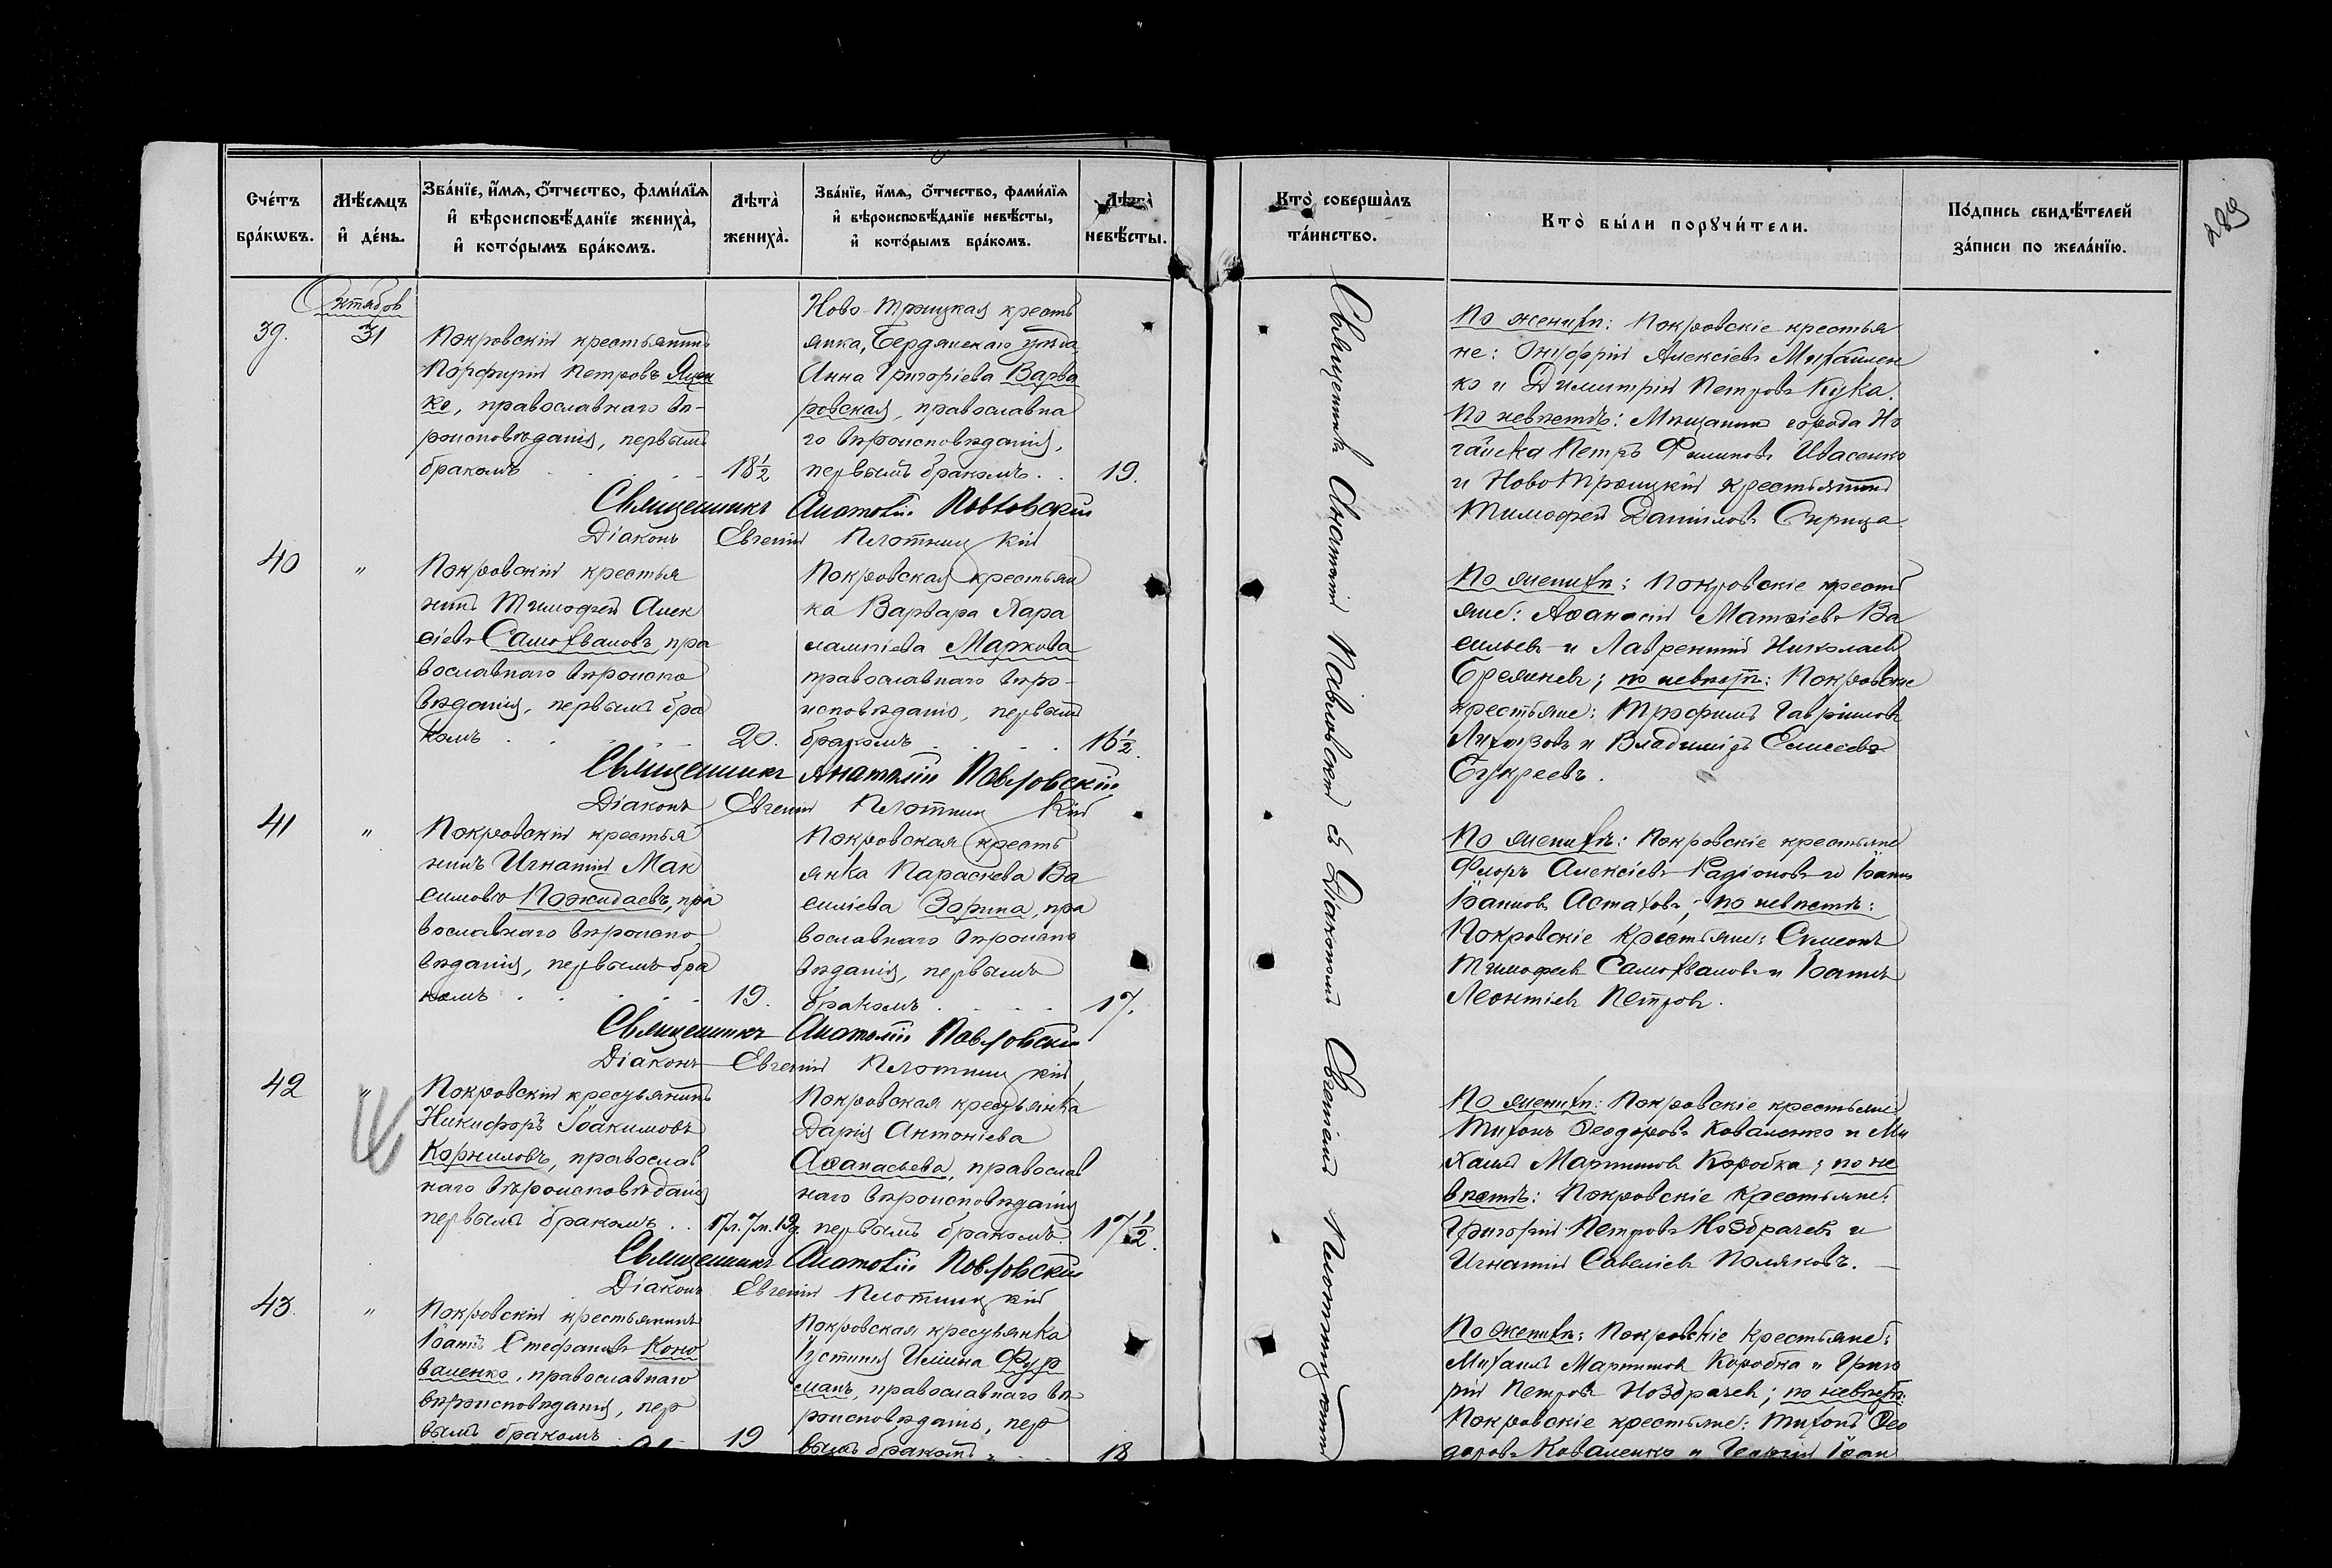 Сче́тъ бра́кωвъ.
Мѣ́сяцъ и҆ де́нь.
Зва́нїе, и҆́мѧ, Ѻ҆́тчество, фами́лїѧ
и҆ вѣроисповѣ́данїе жениха̀,
и҆ кото́рымъ бра́комъ.
Лѣта̀ жениха̀.
Зва́нїе, и҆́мѧ, Ѻ҆́тчество, фами́лїѧ
и҆ вѣроисповѣ́данїе невѣ́сты,
и҆ кото́рымъ бра́комъ.
Лѣта̀ невѣ́сты.
Кто̀ соверша́лъ та́инство.
Кто̀ бы́ли порꙋчи́тели.
По́дпись свидѣ́телей
за́писи по жела́нїю.
289
Октябрь
39.
31
Покровскій крестьянинъ
Порфирій Петровъ Яцен
ко, православнаго вѣ-
роисповѣданія, первымъ
бракомъ
18½
Ново-Троицкая кресть
янка, Бердянскаго уѣзда
Анна Григоріева Варва
ровская, православна
го вѣроисповѣданія,
первымъ бракомъ.
19.
Священникъ Анатолій Павловскій
Діаконъ Евгеній Плотницкій
40
"
Покровскій крестья
нинъ Тимофей Алек
сіевъ Самохваловъ, пра
вославнаго вѣроиспо
вѣданія, первымъ бра
комъ
20.
Покровская крестьян
ка Варвара Хара
лампіева Маркова
православнаго вѣро-
исповѣданія, первымъ
бракомъ
16½.
Священникъ Анатолій Павловскій
Діаконъ Евгеній Плотницкій
41
"
Покровскій крестья
нинъ Игнатій Мак
симовъ Пожидаевъ, пра
вославнаго вѣроиспо
вѣданія, первымъ бра
комъ
19.
Покровская кресть
янка Параскева Ва
силіева Зорина, пра
вославнаго вѣроиспо
вѣданія, первымъ
бракомъ
17.
Священникъ Анатолій Павловскій
Діаконъ Евгеній Плотницкій
42
"
Покровскій крестьянинъ
Никифоръ Іоакимовъ
Корниловъ, православ
наго вѣроисповѣданія
первымъ бракомъ
17л. 7м. 19д.
Покровская крестьянка
Дарія Антоніева
Аѳанасьева, православ
наго вѣроисповѣданія
первымъ бракомъ.
17½.
Священникъ Анатолій Павловскій
Діаконъ Евгеній Плотницкій
43.
"
Покровскій крестьянинъ
Іоаннъ Стефановъ Коно
валенко, православнаго
вѣроисповѣданія, пер
вымъ бракомъ
19
Покровская крестьянка
Іустинія Иліина Фур
манъ, православнаго вѣ
роисповѣданія, пер
вымъ бракомъ
18
Священникъ Анатолій Павловскій съ Діакономъ Евгеніемъ Плотницкимъ
По женихѣ: Покровскіе крестья
не: Онуфрій Алексіевъ Михайлен
ко и Димитрій Петровъ Кука.
По невѣстѣ: Мѣщанинъ города Но
гайска Петръ Филиповъ Ивасенко
и Ново Троицкій крестьянинъ
Тимофей Даниловъ Скрица
По женихѣ: Покровскіе кресть
яне: Аѳанасій Матѳіевъ Ва
сильев и Лаврентій Николаев
; по невѣстѣ: Покровскіе
крестьяне: Трофимъ Гавріиловъ
и Владиміръ Елисеевъ
По женихѣ: Покровскіе крестьяне
Флоръ Алексіевъ Радіоновъ и Іоаннъ
Іоанновъ Астаховъ; по невѣстѣ:
Покровскіе крестьяне: Симеонъ
Тимофеев Самохваловъ и Іоаннъ
Леонтіев Петров.
По женихѣ: Покровскіе крестьяне
Тихонъ Ѳеодоровъ Коваленко и Ми
хаилъ Мартинов Коробка; по не
вѣстѣ: Покровскіе крестьяне:
Григорій Петровъ Ноздрачевъ и
Игнатій Савеліев Поляковъ.
По женихѣ: Покровскіе крестьяне:
Михаилъ Мартинов Коробка и Григо
рій Петров Ноздрачев; по невѣстѣ:
Покровскіе крестьяне: Тихонъ Ѳео
доровъ Коваленко и Георгій Іоан